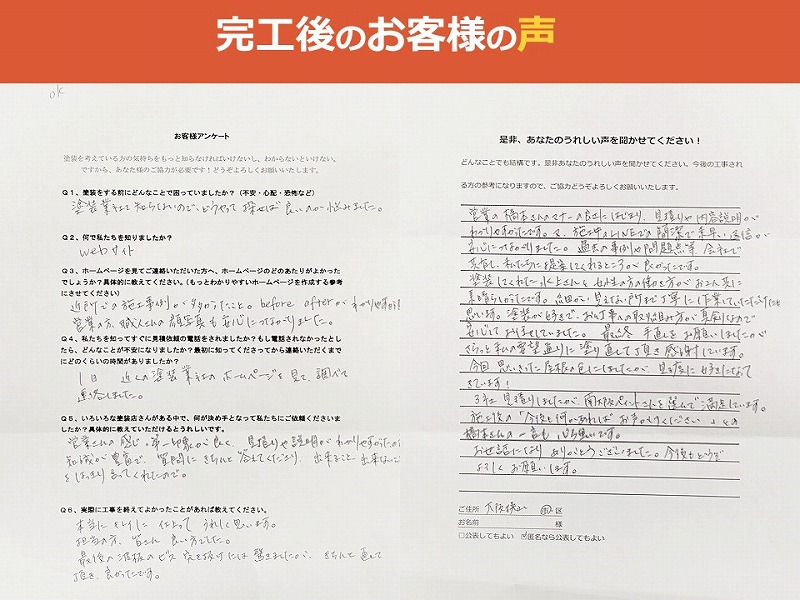 完工後のお客様の声
ok
お客様アンケート
塗装を考えている方の気持ちをもっと知らなければいけないし、わからないといけない。
ですから、あなた様のご協力が必要です!どうぞよろしくお願いいたします。
Q1、塗装をする前にどんなことで困っていましたか?(不安・心配・恐怖など)
塗装業社を知らないので、どうやって探せば良いのか悩みました。
Q2、何で私たちを知りましたか?
webサイト
Q3、ホームページを見てご連絡いただいた方へ、ホームページのどのあたりがよかった
でしょうか?具体的に教えてください。(もっとわかりやすいホームページを作成する参考
にさせてください)
近所での施工事例が多かったこと。before afterがわかりやすかった
営業の方、職人さんの顔写真も安心につながりました。
Q4、私たちを知ってすぐに見積依頼の電話をされましたか?もし電話されなかったとし
たら、どんなことが不安になりましたか?最初に知ってくださってから連絡いただくまで
にどのくらいの時間がありましたか?
1日 近くの塗装業社のホームページを見て、調べて
連絡しました。
Q5、いろいろな塗装店さんがある中で、何が決め手となって私たちにご依頼くださいま
したか?具体的に教えていただけるとうれしいです。
営業さんの感じ・第一印象が良く、見積りや説明がわかりやすかった
知識が豊富で、質問にきちんと答えてくださり、出来ること、出来ないこと
をはっきり言ってくれたので。
Q6、実際に工事を終えてよかったことがあれば教えてください。
本当にキレイに仕上って うれしく思います。
担当の方、皆さん 良い方でした。
最後の 屋根のビス 突き抜けには 驚きましたが、きちんと直して
頂き、良かったです。
是非、あなたのうれしい声を聞かせてください!
どんなことでも結構です。是非あなたのうれしい声を聞かせてください。今後の工事され
る方の参考になりますので、ご協力どうぞよろしくお願いいたします。
営業の橋本さんのマナーの良さにはじまり、見積りや内容説明が
わかりやすかったです。又、施工中のLINEでの簡潔で素早い返信が
安心につながりました。過去の事例や問題点等 会社で
共有し、私たちに提案してくれるところが良かったです。
塗装してくれた 水上さんと 女性の方がお二人共に
素晴らしかったです。点 見えない所まで丁寧に作業していただけたと
思います。塗装が好きで、お仕事への取り組み方が真剣なので
安心してお任せしていました。最終 手直しをお願いしましたが
さらっと私の希望通りに塗り直して頂き感謝しています。
今回 思いきった屋根の色にしましたが 見る度に好きになって
きています!
3社見積りしましたが、南大阪ペイントさんを選んで満足しています。
施工後の「今後も何かあれば お声がけください」との
橋本さんの一言も心強いです。
お世話になり ありがとうございました。今後もどうぞ
よろしくお願いします。
ご住所 大阪狭山 市 区
お名前 様
□公表してもよい ☑匿名なら公表してもよい